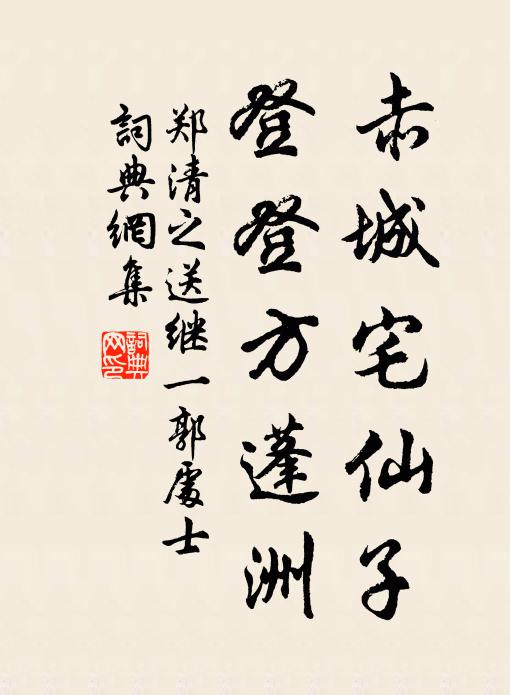 赤城宅仙子
登登方蓬洲
郑清之送继一郭處士
詞典網集
詞典网印